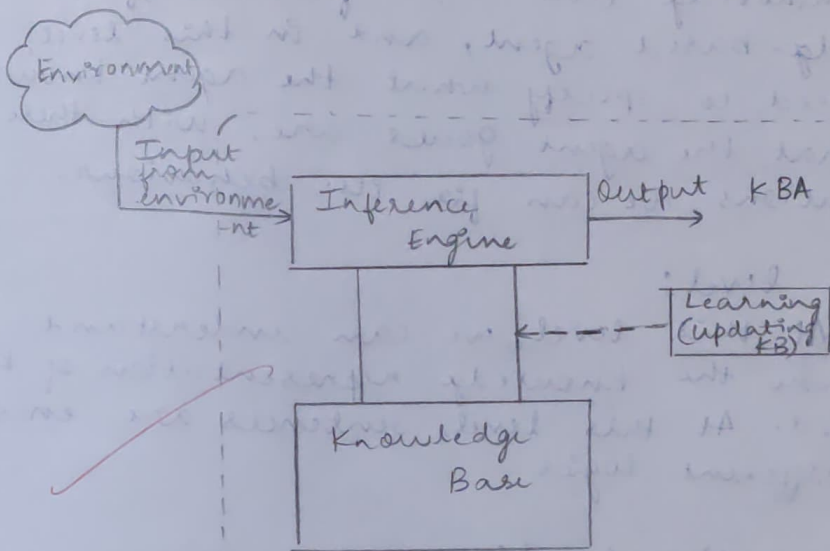 Environment
Input
from
environme
-nt
Inference
Engine
Output KBA
Learning
(updating
KB)
Knowledge
Base